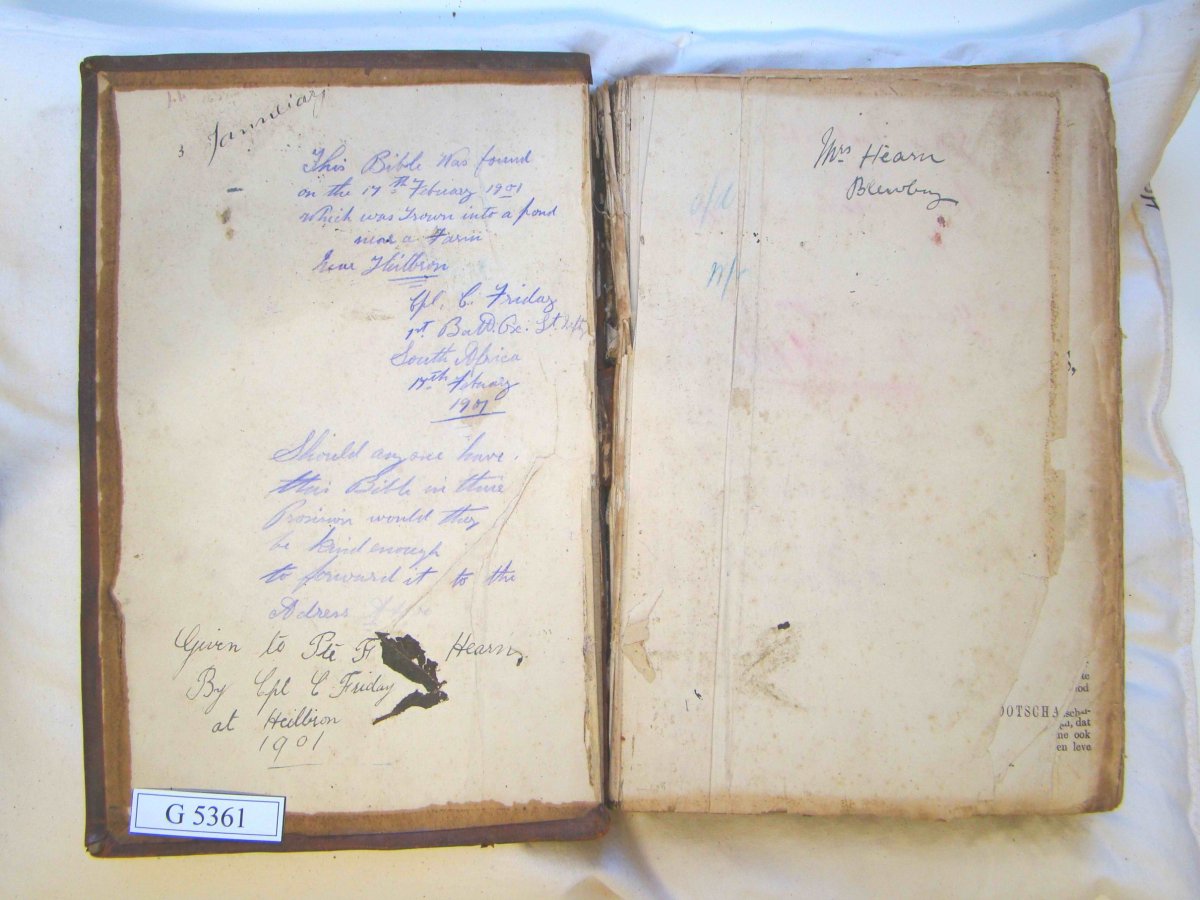 3 Januuary
This Bible Was found
on the 17th Febuary 1901
which was Trown into a pond
near a Farm
Near Heilbron
Cpl. C. Friday
1st Batt. Ox: Lt. Infty
South Africa
17th Febuary
1901
Should anyone have
this Bible in there
Prosision would they
be kind enough
to forward it to the
Adress
Given to Pte F Hearn,
By Cpl C Friday
at Heilbron
1901
G 5361
Mrs Hearn
Blewbury
n/-
OOTSCHA
, dat
ne ook
en leve